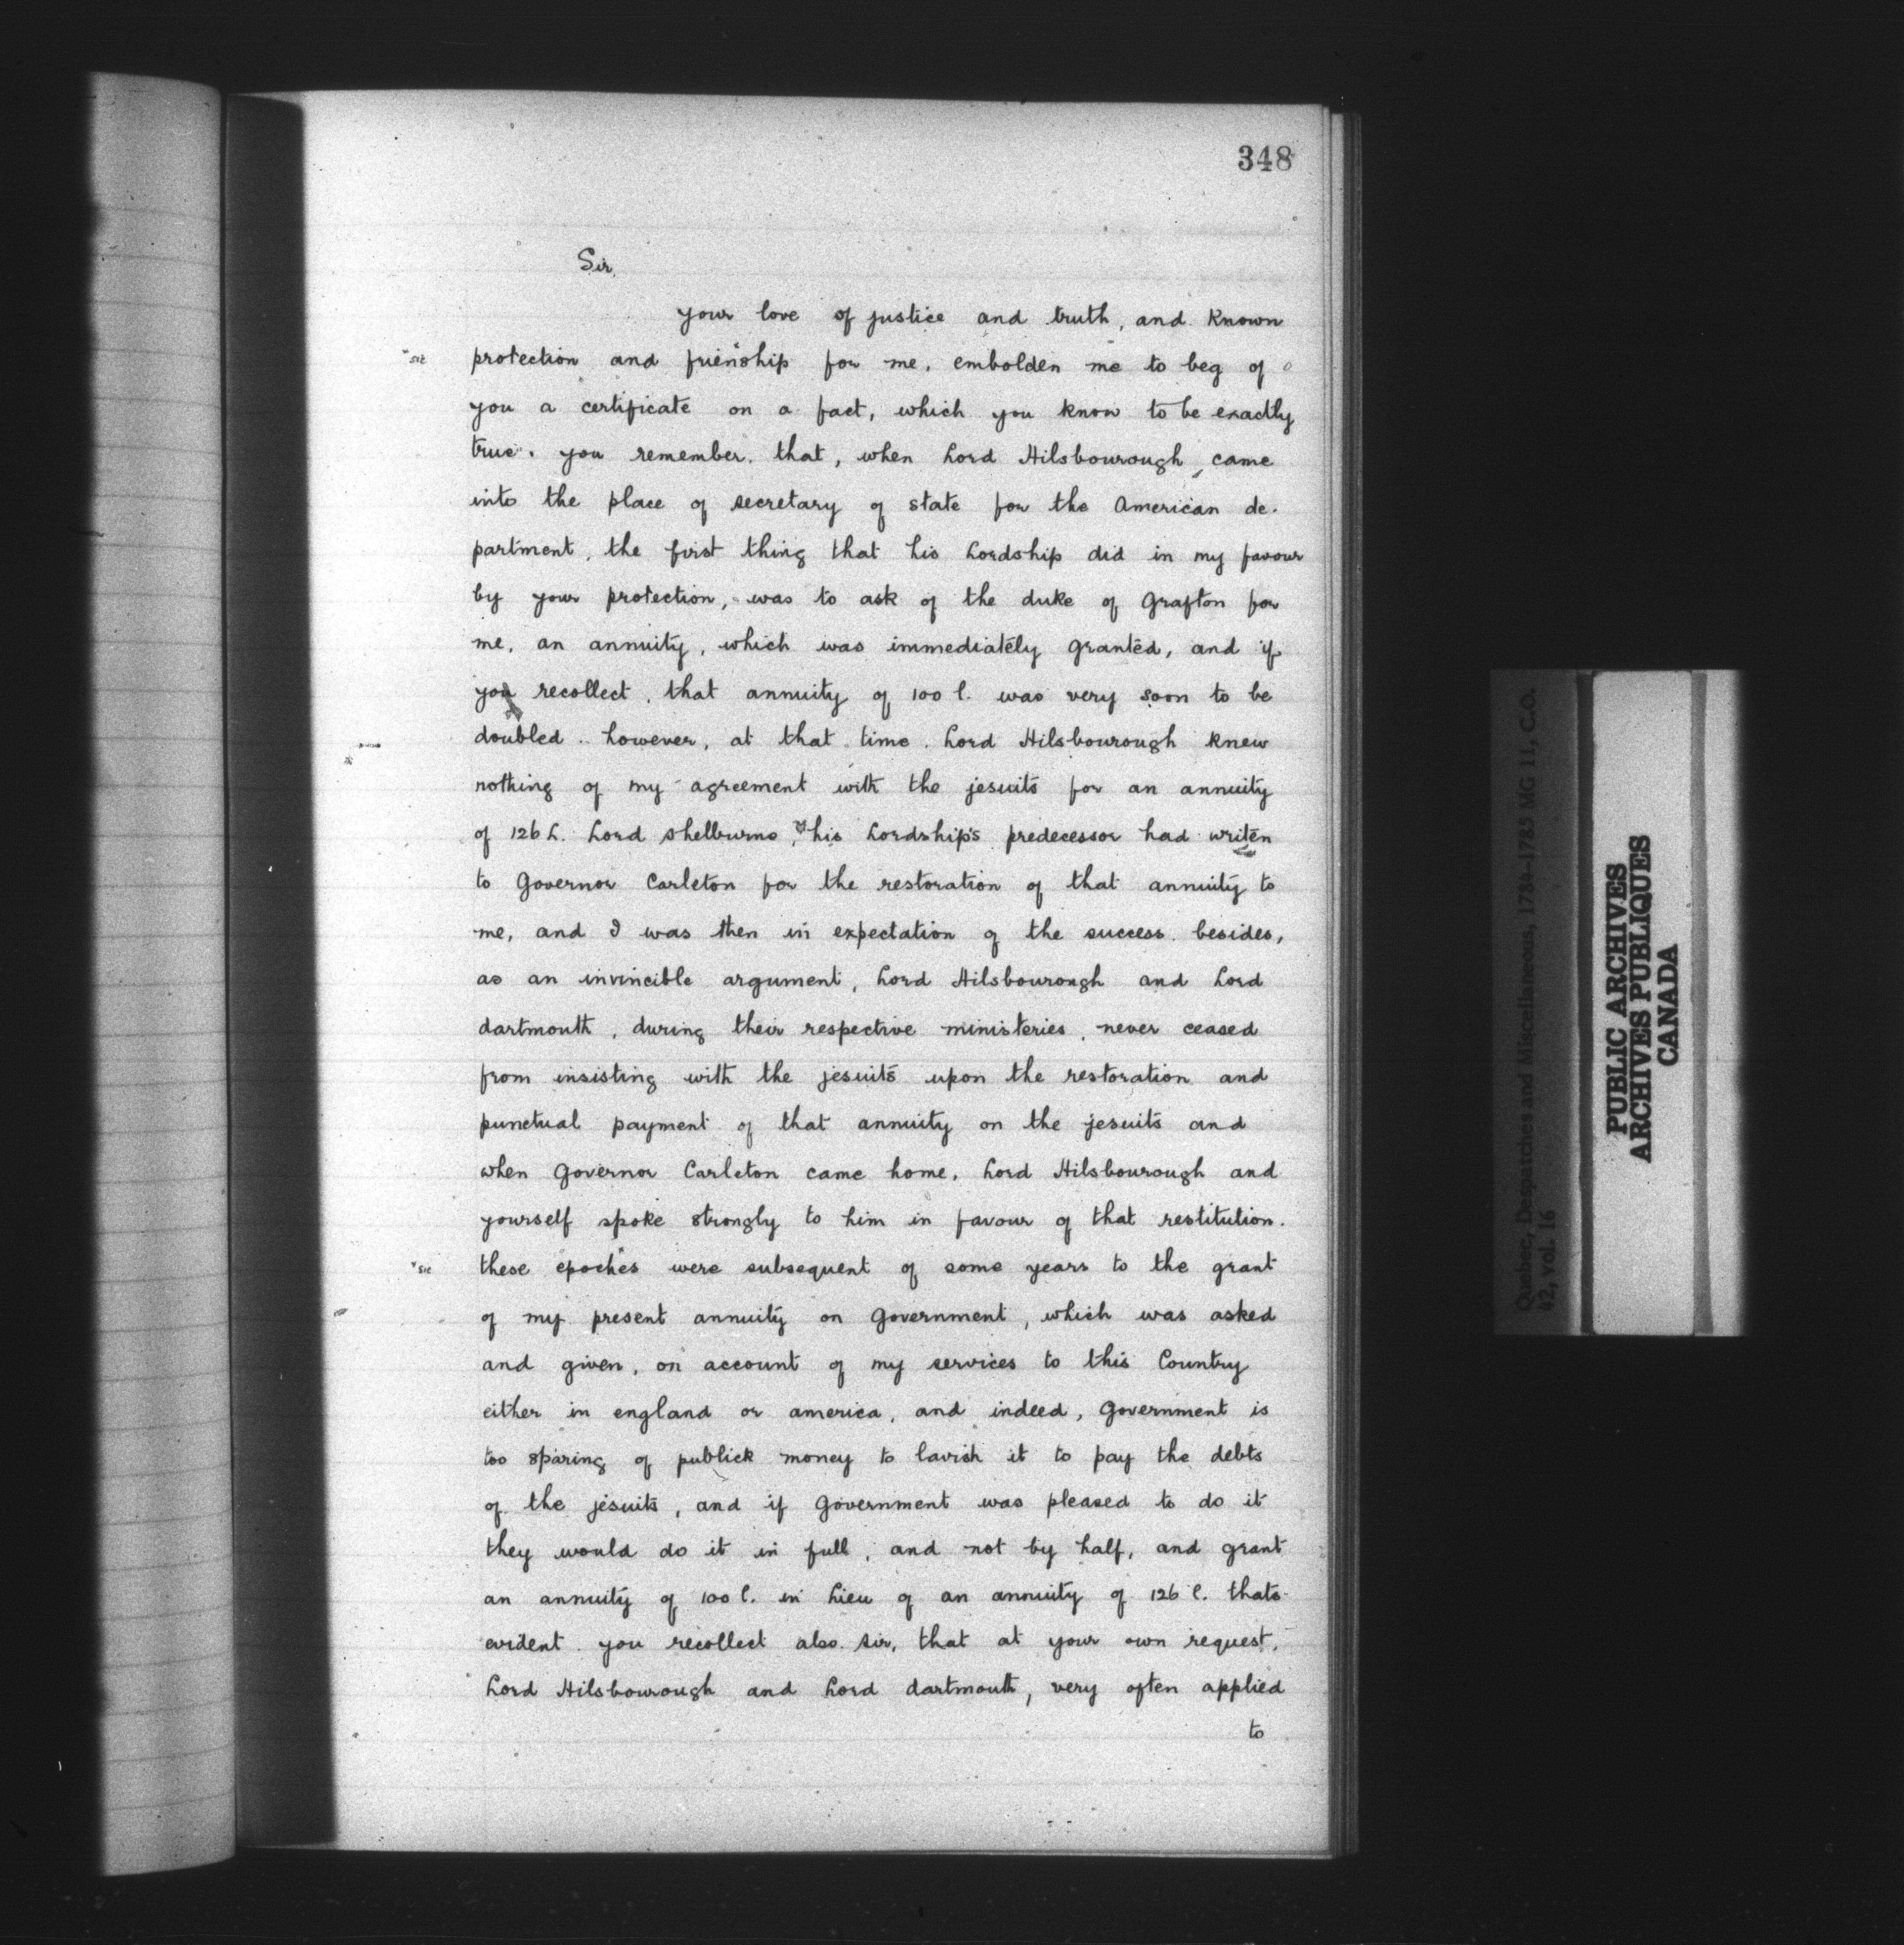 348
Sir,
your love of justice and truth, and known
*sic protection and frien*ship for me, embolden me to beg of
you a certificate on a fact, which you know to be exactly
true. you remember, that, when Lord Hilsbourough, came
into the place of secretary of state for the American de-
partment, the first thing that his Lordship did in my favour
by your protection, was to ask of the duke of Grafton for
me, an annuity, which was immediately granted, and if
you recollect, that annuity of 100 l. was very soon to be
doubled. however, at that time, Lord Hilsbourough knew
nothing of my agreement with the jesuits for an annuity
of 126 L. Lord Shelburne, his Lordship's predecessor had writen
to Governor Carleton for the restoration of that annuity to
me, and I was then in expectation of the success. besides,
as an invincible argument, Lord Hilsbourough and Lord
dartmouth, during their respective ministeries, never ceased
from insisting with the jesuits upon the restoration and
punctual payment of that annuity on the jesuits and
when Governor Carleton came home, Lord Hilsbourough and
yourself spoke strongly to him in favour of that restitution.
*sic these epoches* were subsequent of some years to the grant
of my present annuity on Government, which was asked
and given, on account of my services to this Country
either in england or america, and indeed, Government is
too sparing of publick money to lavish it to pay the debts
of the jesuits, and if Government was pleased to do it
they would do it in full, and not by half, and grant
an annuity of 100 l. in Lieu of an annuity of 126 l. thats
evident. you recollect also. Sir, that at your own request,
Lord Hilsbourough and Lord dartmouth, very often applied
to
Quebec, Despatches and Miscellaneous, 1784-1785 MG 11, C.O.
42, vol. 16
PUBLIC ARCHIVES
ARCHIVES PUBLIQUES
CANADA